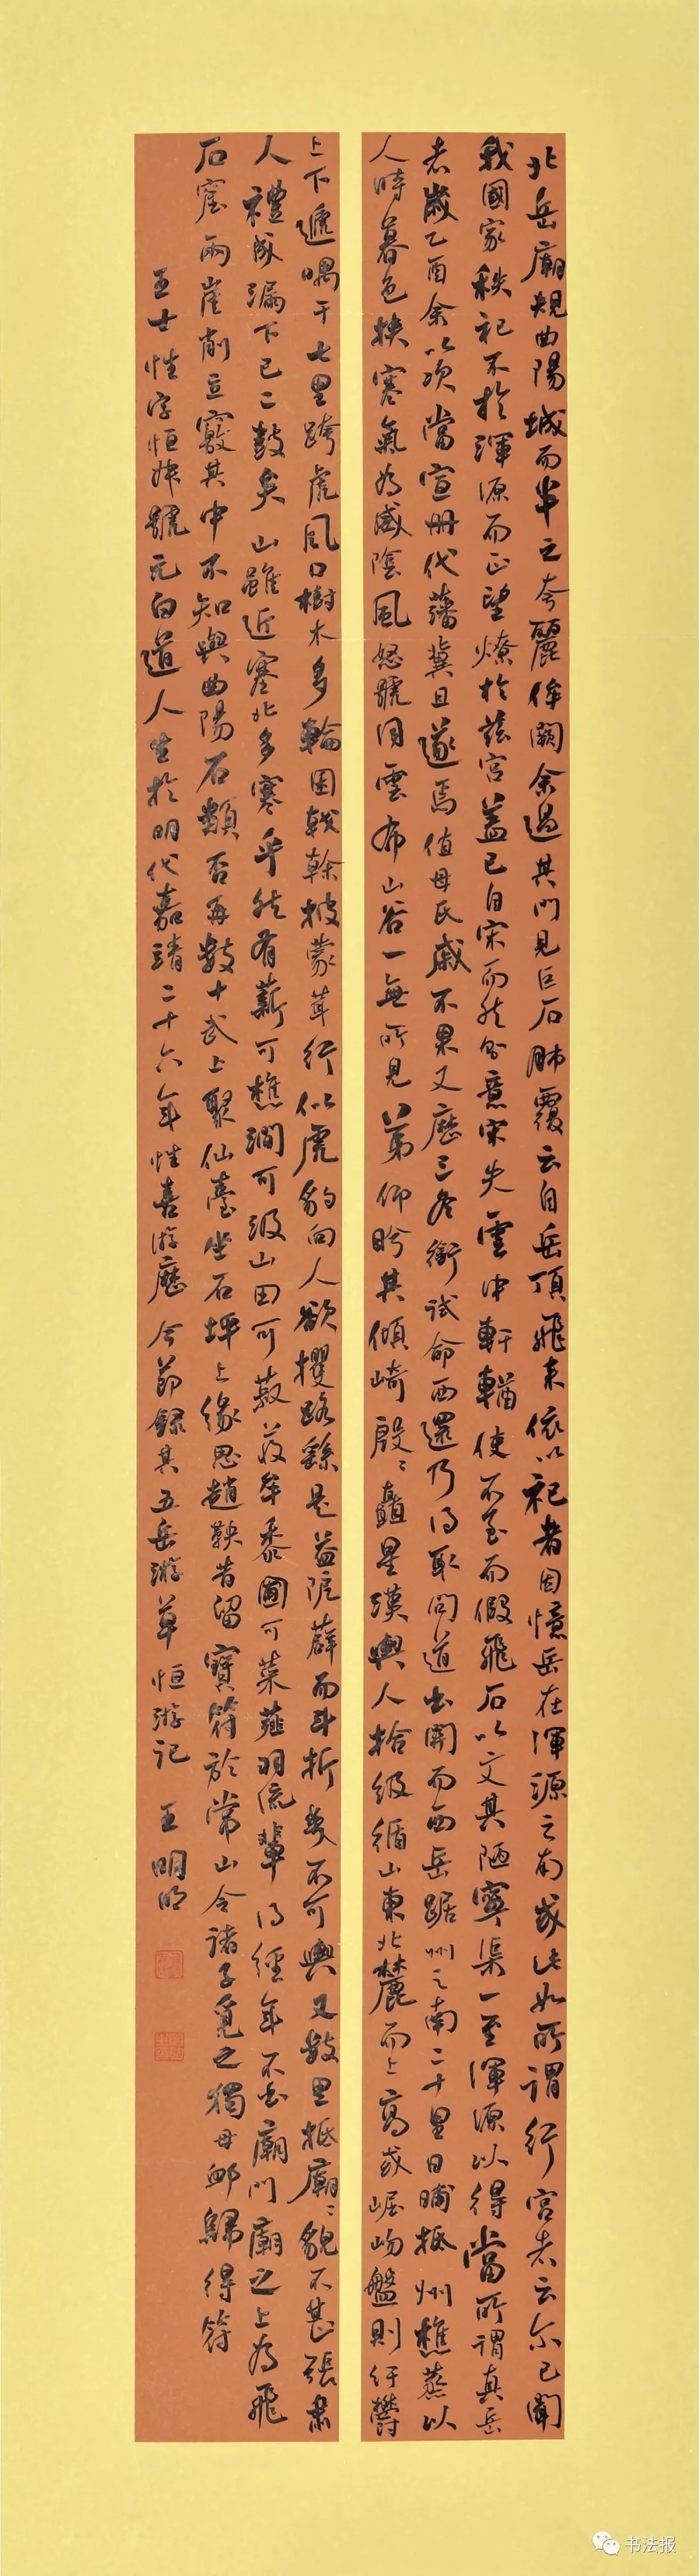 北岳廟規曲陽城而半之夸麗侔闕余過其門見巨石肺覆云自岳頂飛来依以祀者因憶岳在渾源之南或此如所謂行宮者云尔已聞
我國家秩祀不於渾源而正望燎於兹宮蓋已自宋而然余意宋失雲中軒輶使不至而假飛石以文其陋寧渠一至渾源以得當所謂真岳
者歲乙酉余以次當宣冊代藩冀且遂焉值母氏戚不果又歷三冬銜試命西還乃得取間道出關而西岳踞州之南二十里日晡抵州樵蒸以
人時暮色挾寒氣為威陰風怒號同雲布山谷一無所見第仰眄其傾崎殷殷矗星漢輿人拾级循山東北麓而上高或崛岉盤則紆鬱
上下遞喁于七里跨虎風口樹木多輪囷戟榦披蒙茸行似虎豹向人欲攫路繇是益阨薜而斗折步不可輿又数里抵廟廟貌不甚張肅
人禮成漏下已二鼓矣山雖近塞北多寒乎然有薪可樵澗可汲山田可蓺菽牟黍圃可菜薤羽流輩得經年不出廟門廟之上為飛
石窟兩崖削立竅其中不知與曲陽石類否再数十武上聚仙臺坐石坪上緣思趙鞅昔留寶符於常山令諸子覓之獨毋卹歸得符
王士性字恒叔號元白道人生於明代嘉靖二十六年性喜游歷今節録其五岳游草恒游记 王明明
书法报